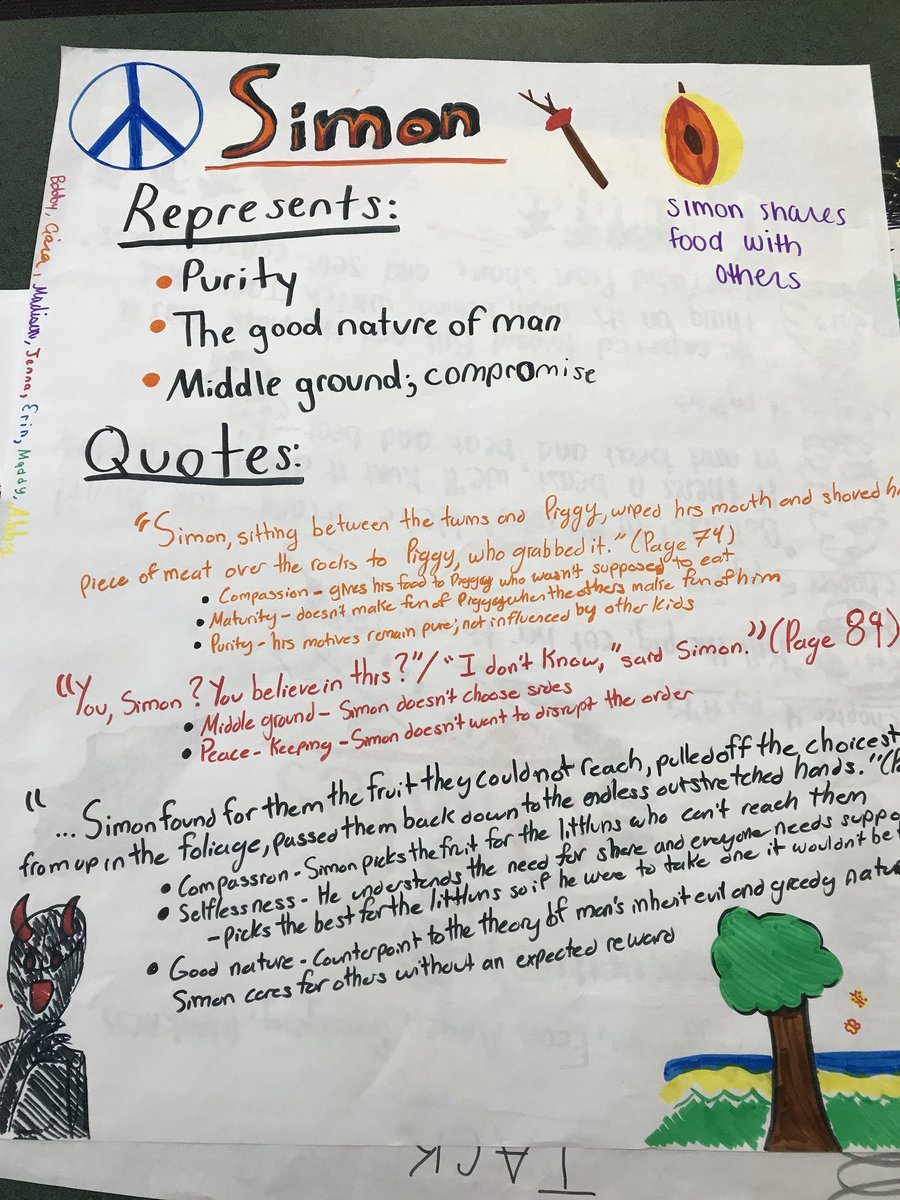 Simon
Represents:
• Purity
• The good nature of man
• Middle ground; compromise
Simon shares
food with
others
Bobby, Ciera, Madison, Jenna, Erin, Maddy, Abby
Quotes:
"Simon, sitting between the twins and Piggy, wiped his mouth and shoved
piece of meat over the rocks to Piggy, who grabbed it." (Page 74)
• Compassion - gives his food to Piggy who wasn't supposed to eat
• Maturity - doesn't make fun of Piggy when the others make fun of him
• Purity - his motives remain pure; not influenced by other kids
"You, Simon? You believe in this?"/"I don't know," said Simon." (Page 89)
• Middle ground - Simon doesn't choose sides
• Peace-Keeping - Simon doesn't want to disrupt the order
"... Simon found for them the fruit they could not reach, pulled off the choicest
from up in the foliage, passed them back down to the endless outstretched hands."
• Compassion - Simon picks the fruit for the littluns who can't reach them
• Selflessness - He understands the need for share and everyone needs
- Picks the best for the littluns so if he were to take one it wouldn't be
• Good nature - Counterpoint to the theory of man's inherit evil and greedy
Simon cares for others without an expected reward
JACK